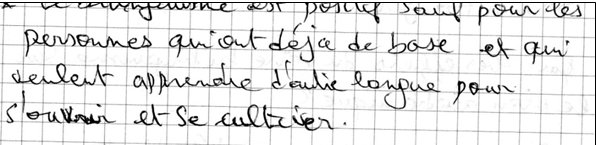 est positif sauf pour les
personnes qui ont déjà de base et qui
veulent apprendre d'autre langue pour
s'ouvrir et se cultiver.